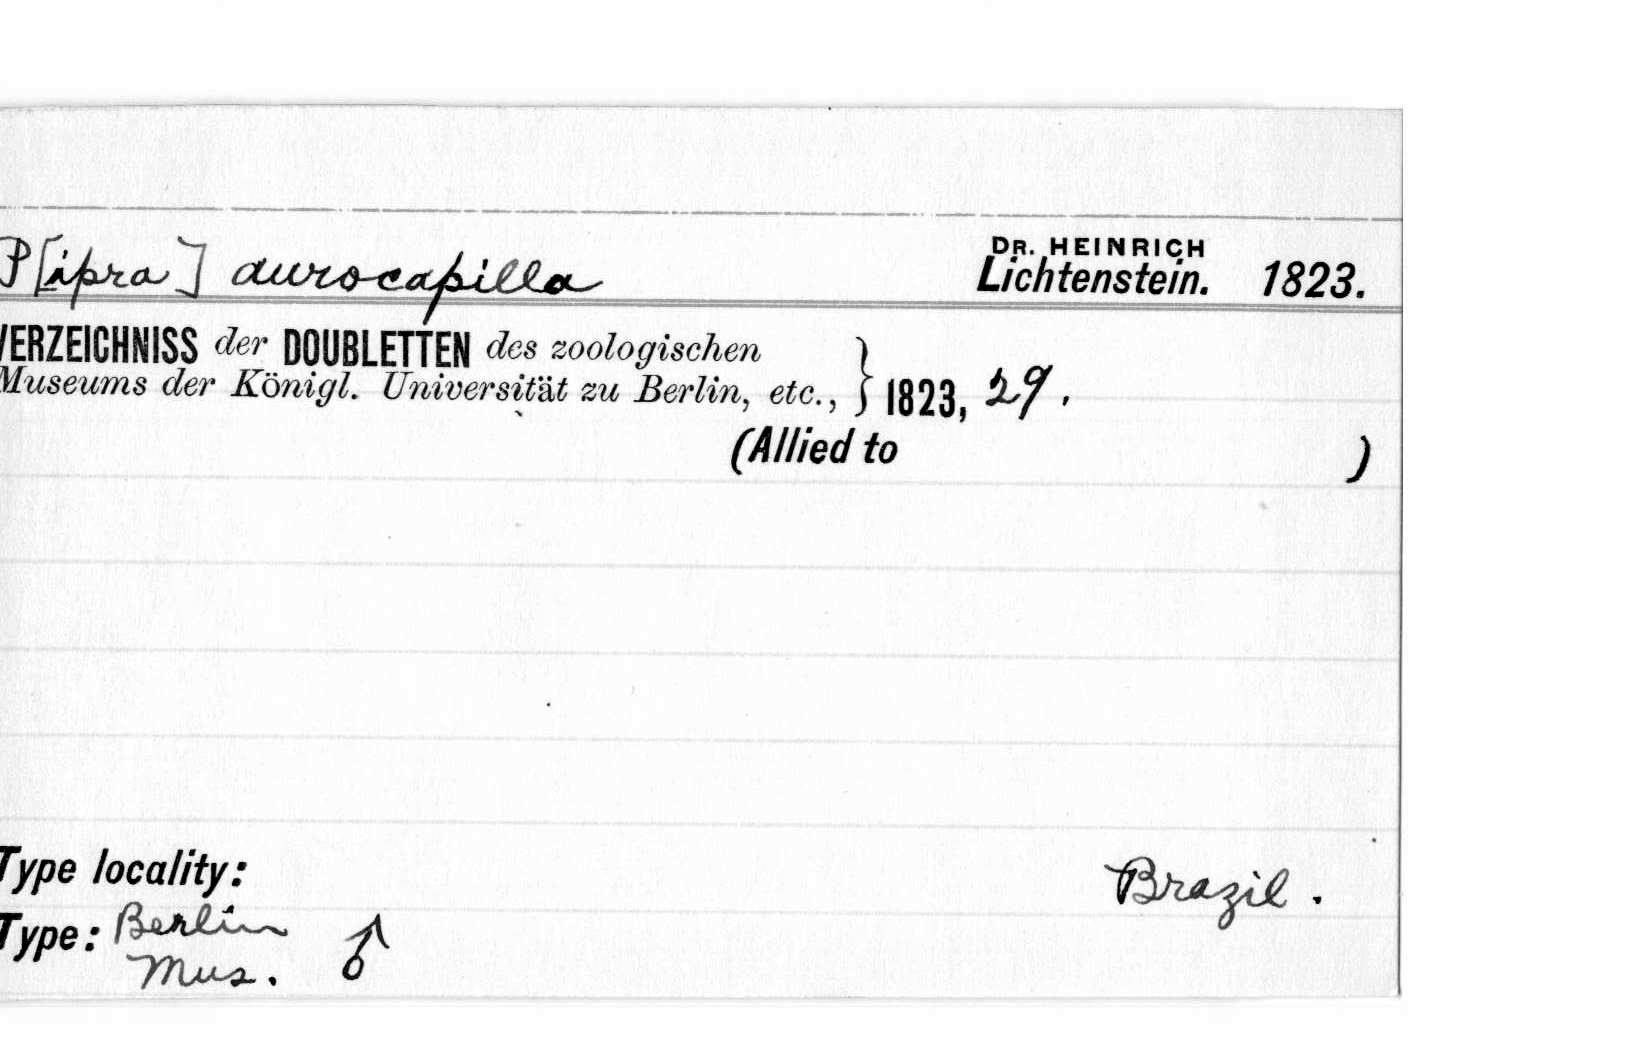 P[ipra] aurocapilla DR. HEINRICH
Lichtenstein. 1823.
VERZEICHNISS der DOUBLETTEN des zoologischen
Museums der Königl. Universität zu Berlin, etc., } 1823, 29.
(Allied to )
Type locality: Brazil.
Type: Berlin
Mus. ♂